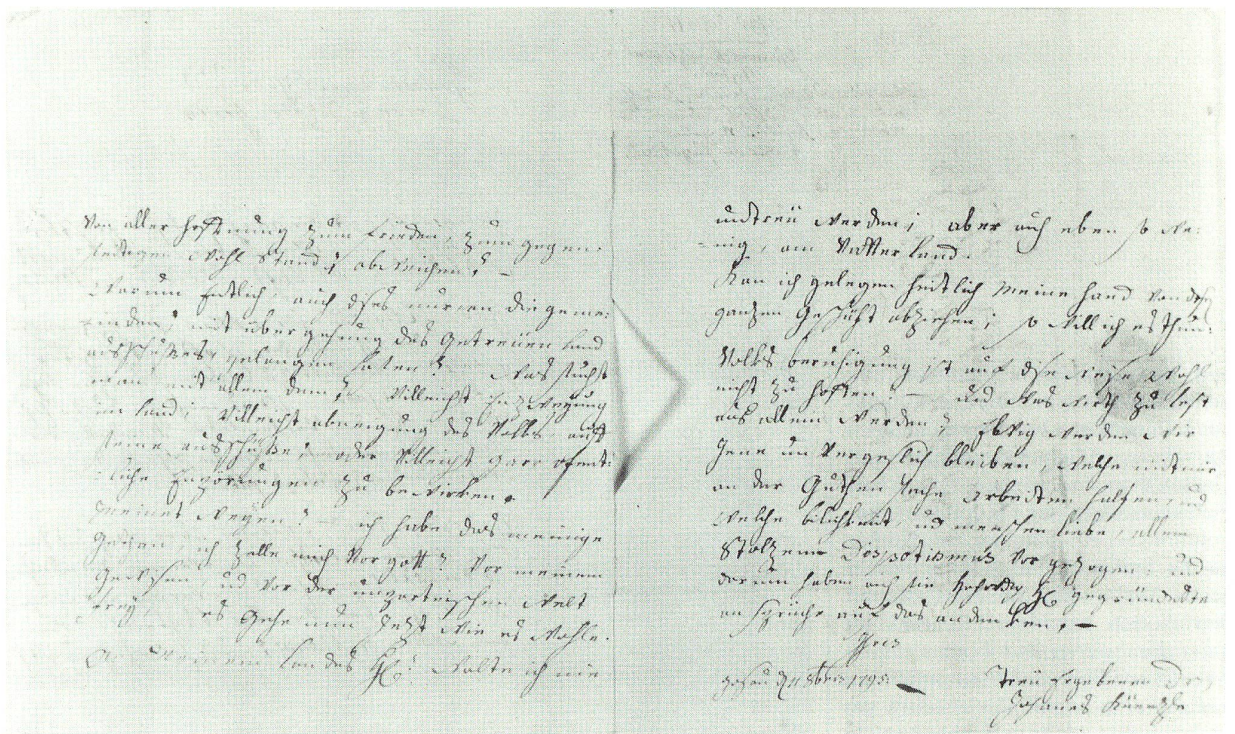 Von aller Hoffnung zum Frieden, zum gegen:
seitigen Wohl stand; abweichen? —
Warum Entlich, auch dises nur an die geme:
inden, mit übergehung des Getreüen Land
ausschußes, gelangen laten? Was sucht
man mit allem dem? Villeicht Entzweyung
im Land; Villeicht abneigung des Volks, auf
seine ausschüße, oder Villeicht gare ofent:
:liche Empörungen zu bewirken.
meinet wegen? — ich habe das meinige
gethan, ich stelle mich Vor gott? Vor meinem
gewissen und vor der unparteiischen Welt
frey, es Gehe nun Jetzt wie es Wohle.
An meinem Landes H: Wolte ich nie
untreü werden; aber auch eben so we:
:nig, am Vatter Land.
Kan ich gelegenheitlich meine Hand Von dem
ganzen Geschäft abziehen; so will ich es thun:
Volks beruhigung ist auf dise weise Wohl
nicht zu hoffen. — und was wirth zu lest
aus allem werden? Ewig werden wir
Jene un Vergeslich bleiben, welche mit mir
an der Guthen sache arbeiten halfen, und
welche bilichkeit und menschen liebe, allem
Stolzem Dospotismus Vor gezogen. und
darum haben auch sie gegründete
an sprüche auf das andenken. —
Ihres
gosau 8bris 1795. —
Treu Ergebener
Johanes Küenzle